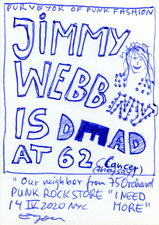 PURVEYOR OF PUNK FASHION
JiMMY
WEBB
IS DEAD
AT 62
Cancer
"Our neighbor from 75 Orchard
PUNK ROCK STORE "I NEED
14 IV 2020 NYC MORE"